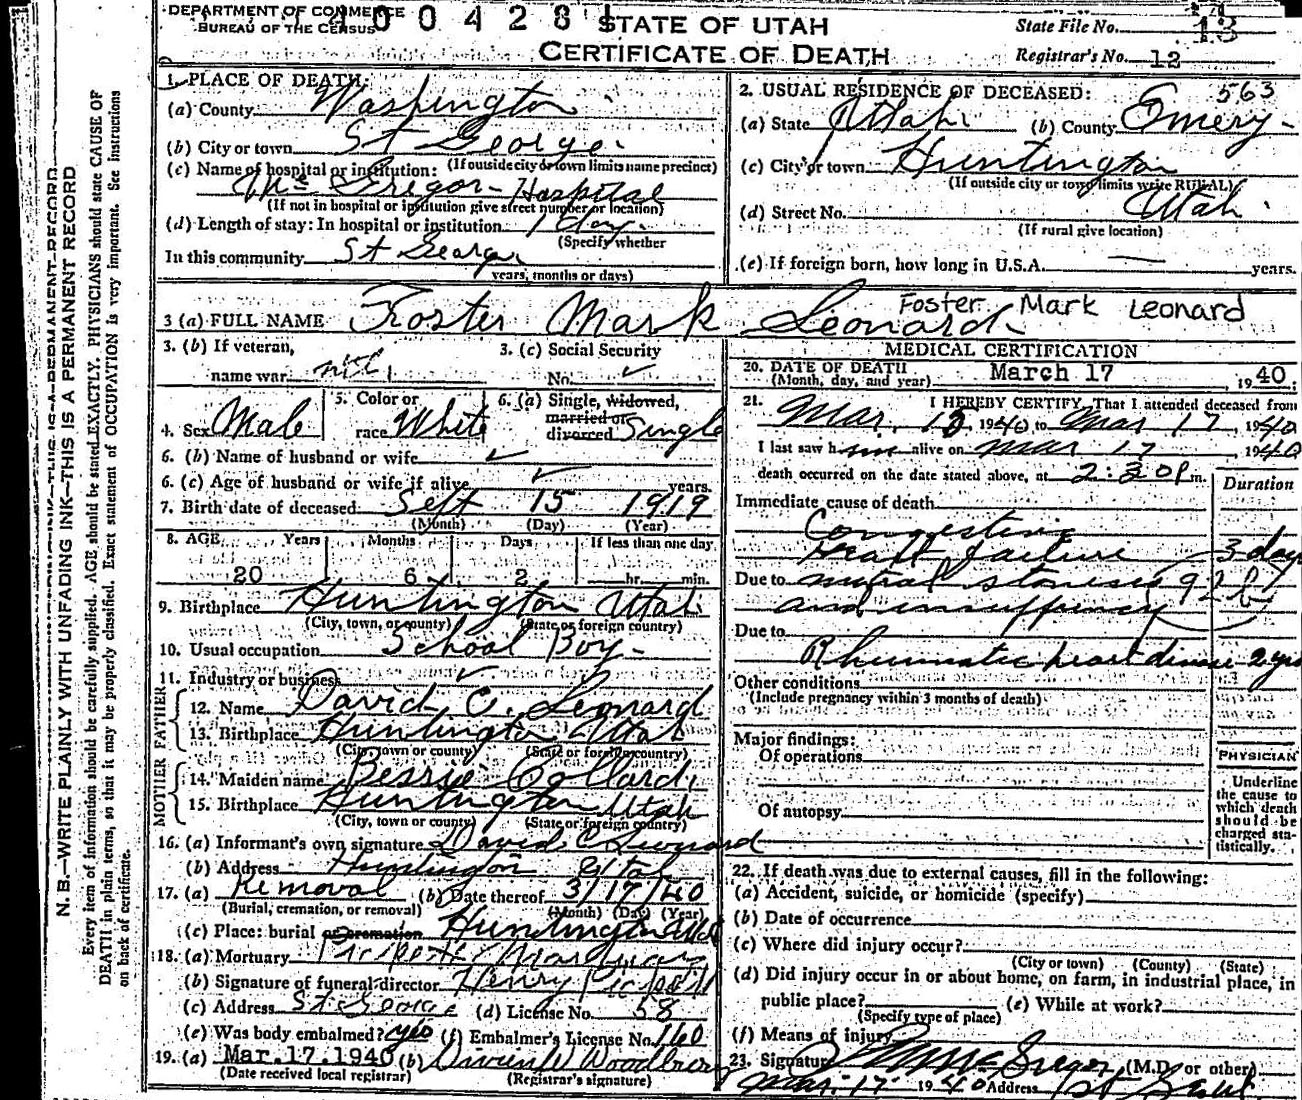 DEPARTMENT OF COMMERCE
BUREAU OF THE CENSUS
400428
STATE OF UTAH
CERTIFICATE OF DEATH
State File No. 13
Registrar's No. 12
N. B.—WRITE PLAINLY WITH UNFADING INK—THIS IS A PERMANENT RECORD
Every item of information should be carefully supplied. AGE should be stated EXACTLY. PHYSICIANS should state CAUSE OF
DEATH in plain terms, so that it may be properly classified. Exact statement of OCCUPATION is very important. See instructions
on back of certificate.
1. PLACE OF DEATH:
(a) County Washington
(b) City or town St George
(If outside city or town limits name precinct)
(c) Name of hospital or institution:
McGregor Hospital
(If not in hospital or institution give street number or location)
(d) Length of stay: In hospital or institution 1 day
(Specify whether
In this community St George
years, months or days)
2. USUAL RESIDENCE OF DECEASED: 563
(a) State Utah (b) County Emery
(c) City or town Huntington
(If outside city or town limits write RURAL)
Utah
(d) Street No.
(If rural give location)
(e) If foreign born, how long in U.S.A. — years.
3 (a) FULL NAME Foster Mark Leonard Foster Mark Leonard
3. (b) If veteran,
name war
3. (c) Social Security
No. ✓
4. Sex Male
5. Color or
race White
6. (a) Single, widowed,
married or
divorced Single
6. (b) Name of husband or wife ✓
6. (c) Age of husband or wife if alive ✓ years.
7. Birth date of deceased Sept 15 1919
(Month) (Day) (Year)
8. AGE Years Months Days If less than one day
20 6 2 hr. min.
9. Birthplace Huntington Utah
(City, town, or county) (State or foreign country)
10. Usual occupation School Boy
11. Industry or business ✓
FATHER
12. Name David C. Leonard
13. Birthplace Huntington Utah
(City, town or county) (State or foreign country)
MOTHER
14. Maiden name Bessie Collard
15. Birthplace Huntington Utah
(City, town or county) (State or foreign country)
16. (a) Informant's own signature David C Leonard
(b) Address Huntington Utah
17. (a) Removal (b) Date thereof 3/17/40
(Burial, cremation, or removal) (Month) (Day) (Year)
(c) Place: burial or cremation Huntington Utah
18. (a) Mortuary
(b) Signature of funeral director Henry
(c) Address St George (d) License No. 58
(e) Was body embalmed? yes (f) Embalmer's License No. 160
19. (a) Mar. 17. 1940 (b) Woodbury
(Date received local registrar) (Registrar's signature)
MEDICAL CERTIFICATION
20. DATE OF DEATH
(Month, day, and year) March 17 1940
21. I HEREBY CERTIFY, That I attended deceased from
Mar. 15, 1940, to Mar 17, 1940
I last saw him alive on Mar 17 1940
death occurred on the date stated above, at 2:30 P m.
Duration
Immediate cause of death
Congestive
heart failure 3 days
Due to mitral stenosis 92b
and insufficiency
Due to
Rheumatic heart disease 2 yrs
Other conditions
(Include pregnancy within 3 months of death)
Major findings:
Of operations
Of autopsy
PHYSICIAN
Underline
the cause to
which death
should be
charged sta-
tistically.
22. If death was due to external causes, fill in the following:
(a) Accident, suicide, or homicide (specify)
(b) Date of occurrence
(c) Where did injury occur?
(City or town) (County) (State)
(d) Did injury occur in or about home, on farm, in industrial place, in
public place? (e) While at work?
(Specify type of place)
(f) Means of injury
23. Signature McGregor (M.D. or other)
Mar. 17 1940 Address St George